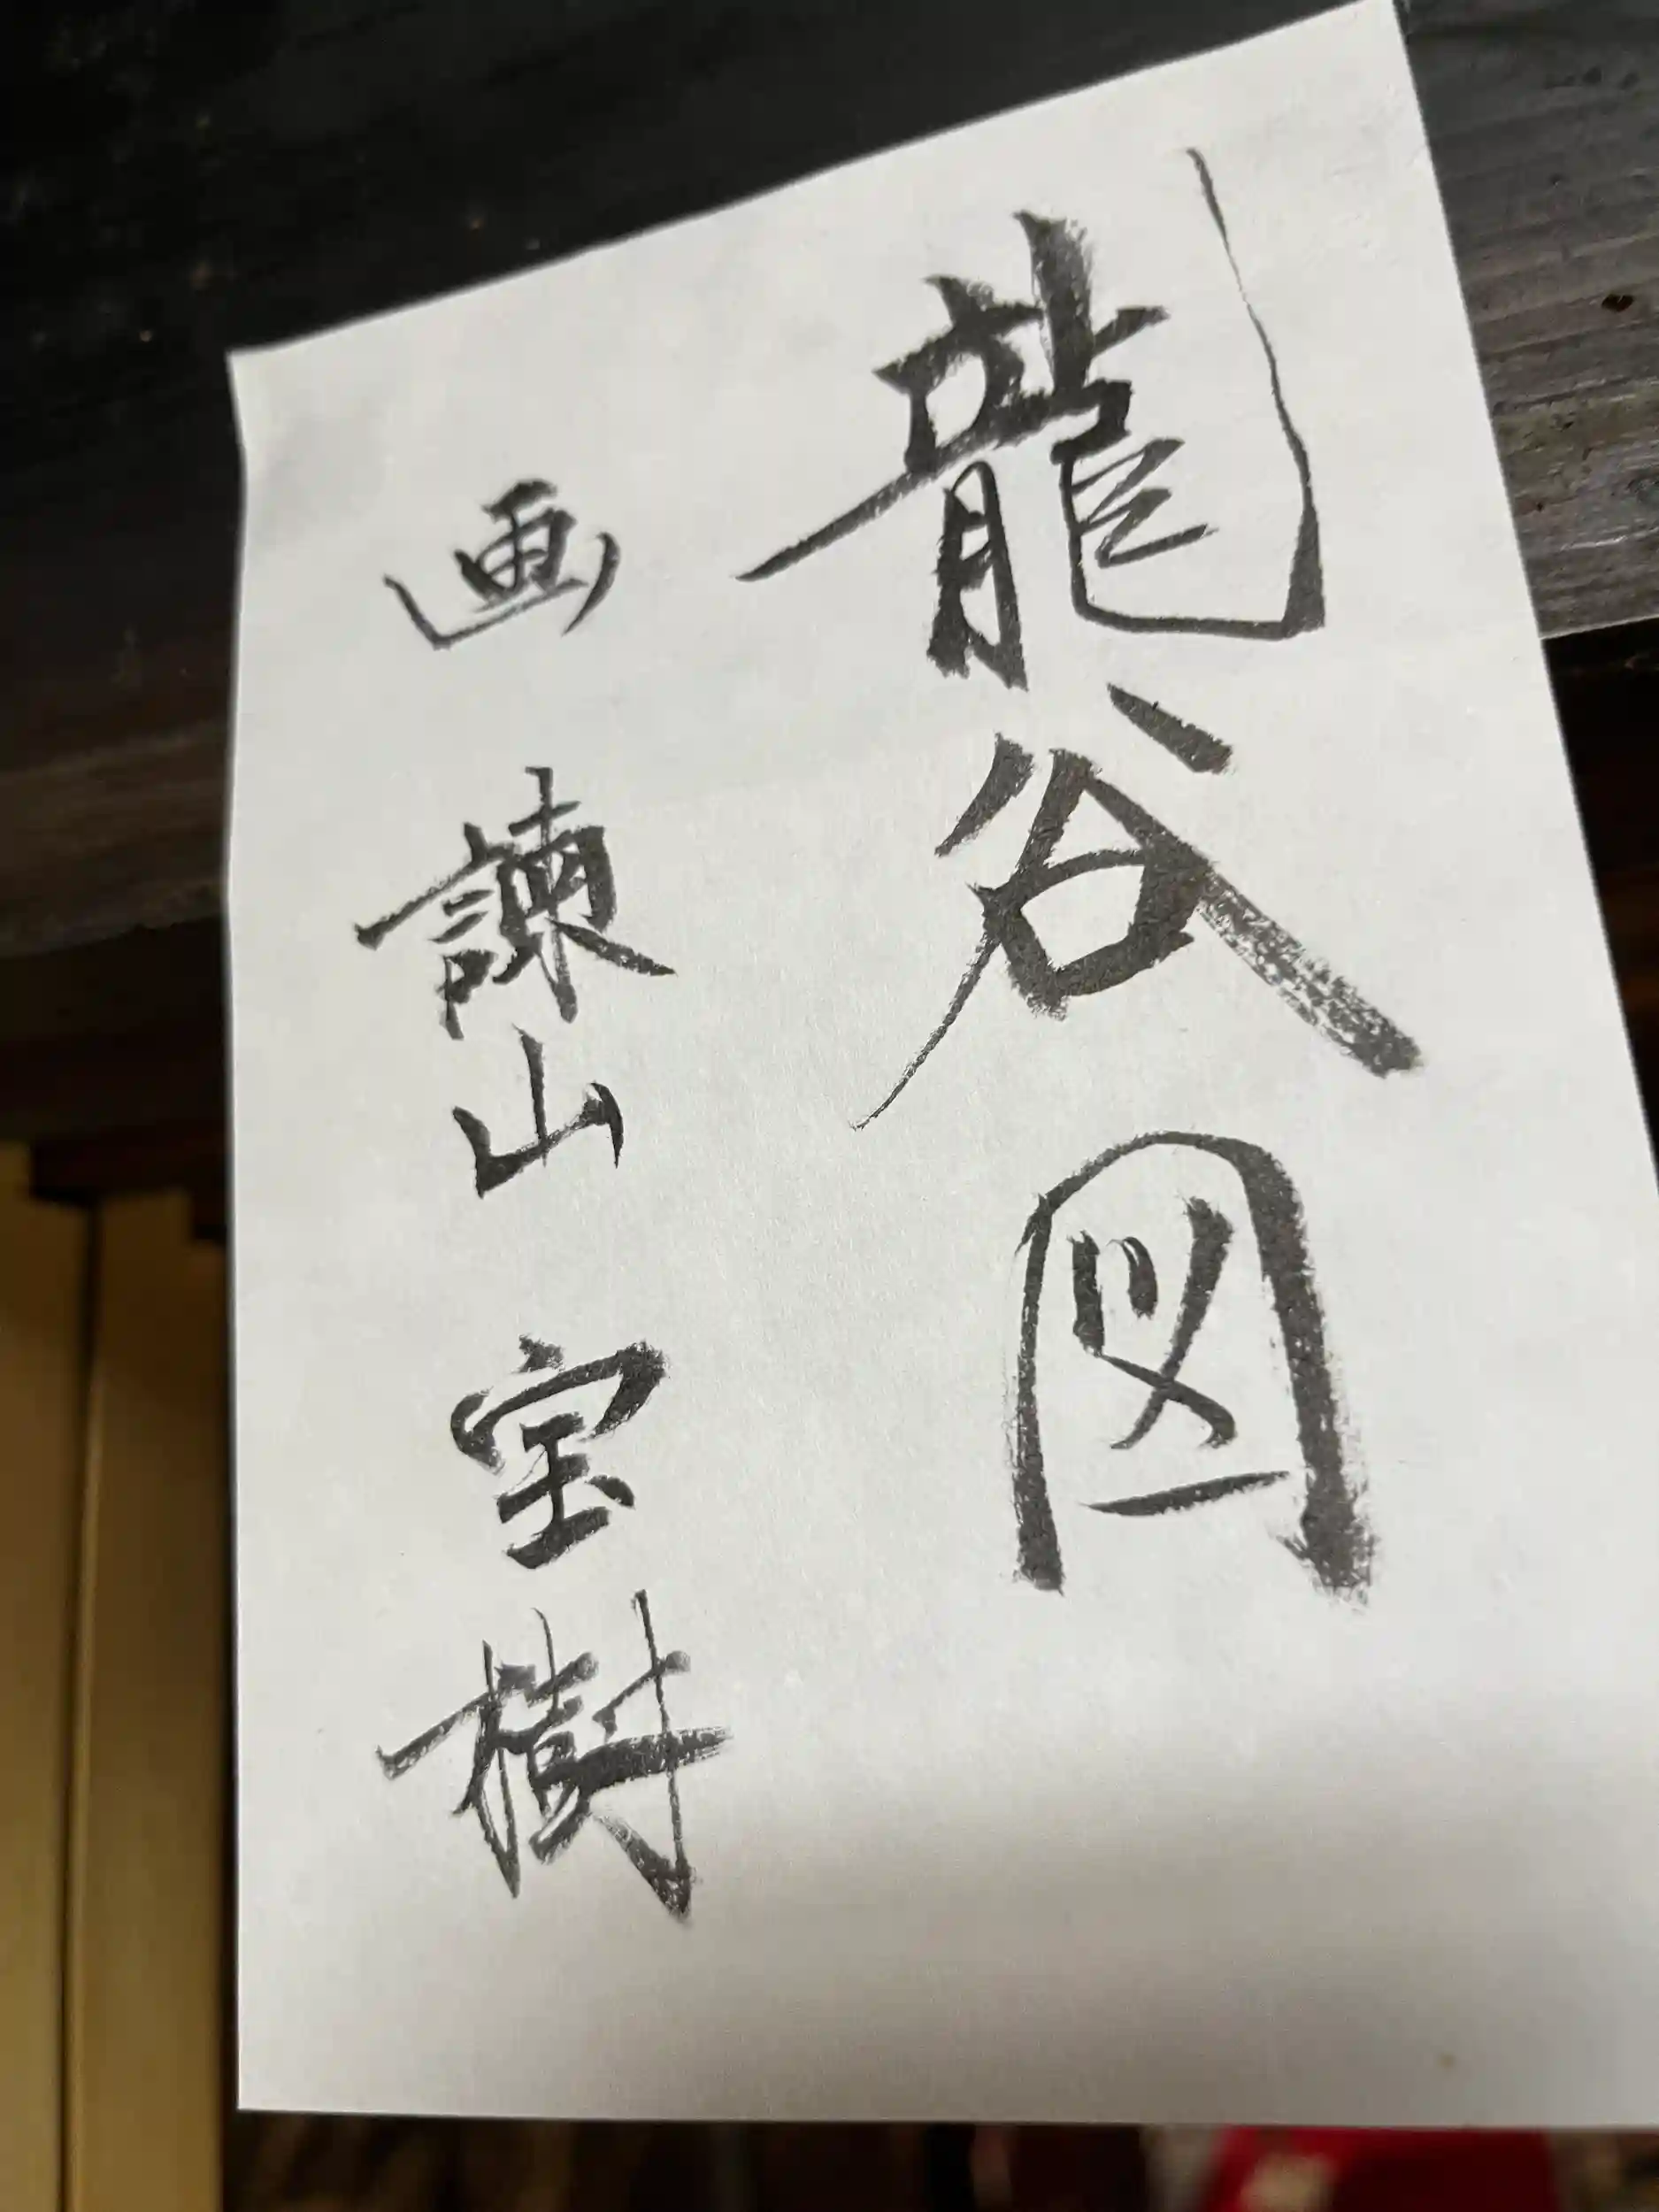 龍谷図
画 諫山宝樹